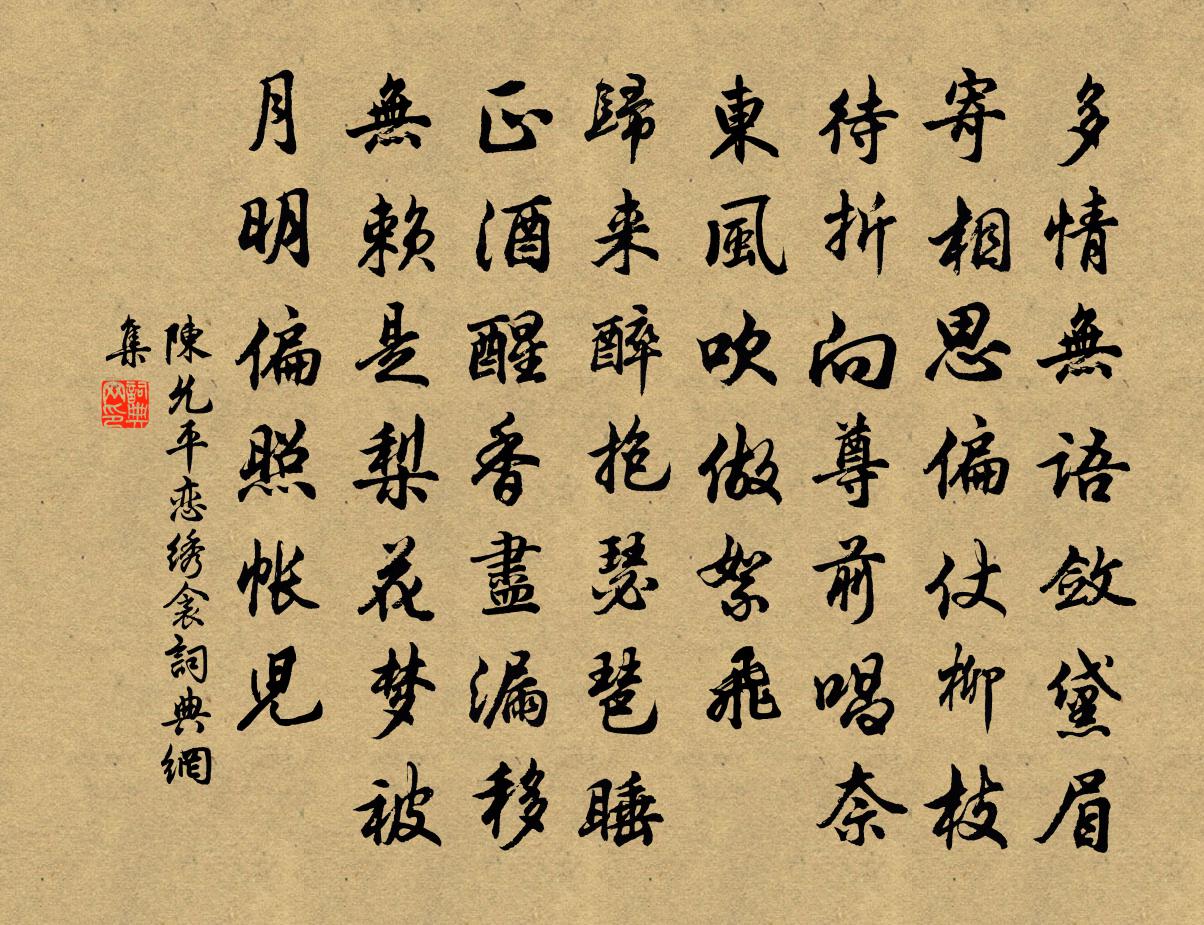 多情無語斂黛眉
寄相思偏仗柳枝
待折向尊前唱奈
東風吹做絮飛
歸来醉抱琵琶睡
正酒醒香盡漏移
無賴是梨花梦被
月明偏照帐児
陳允平恋绣衾詞典網
集
詞典
网印